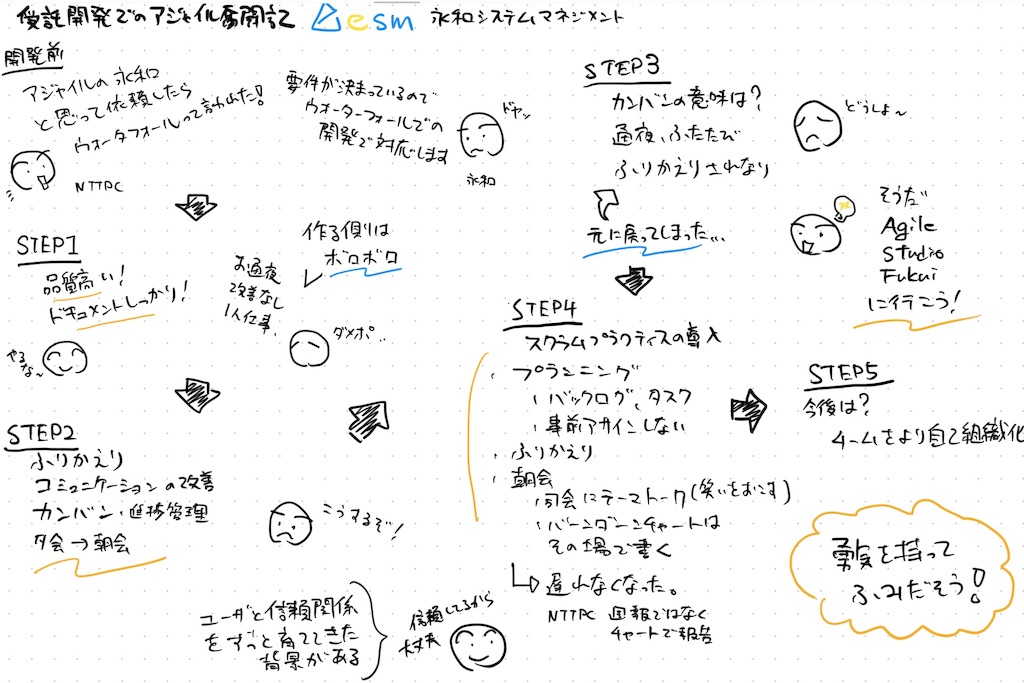 受託開発でのアジャイル奮闘記 esm 永和システムマネジメント
開発前
アジャイルの永和
と思って依頼したら
ウォータフォールって言われた!
NTTPC
要件が決まっているので
ウォーターフォールでの
開発で対応します
ドヤッ
永和
STEP1
品質高い!
ドキュメントしっかり!
やるな〜
作る側は
ボロボロ
お通夜
改善なし
1人仕事
ダメポ..
STEP2
ふりかえり
コミュニケーションの改善
カンバン・進捗管理
夕会→朝会
こうするぞ!
ユーザと信頼関係
をずっと育ててきた
背景がある
信頼してるから
大丈夫
STEP3
カンバンの意味は?
通夜、ふたたび
ふりかえりされなり
どうしよ〜
元に戻ってしまった...
そうだ
Agile
Studio
Fukui
に行こう!
STEP4
スクラムプラクティスの導入
・プランニング
・バックログ、タスク
・事前アサインしない
・ふりかえり
・朝会
・司会にテーマトーク(笑いをおこす)
・バーンダーンチャートは
その場で書く
遅れなくなった。
NTTPC 週報ではなく
チャートで報告
STEP5
今後は?
チームをより自己組織化
勇気を持って
ふみだそう!